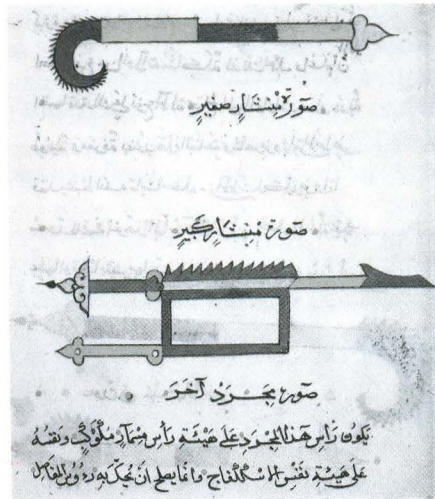 صورة منشار صغير
صورة منشار كبير
صورة مجرد آخر
يكون رأس هذا المجرد على هيئة رأس مسمار مكوكب ونقشه
على هيئة نقش الاسكلفاج وانما يصلح ان يحك به رءوس المفاصل